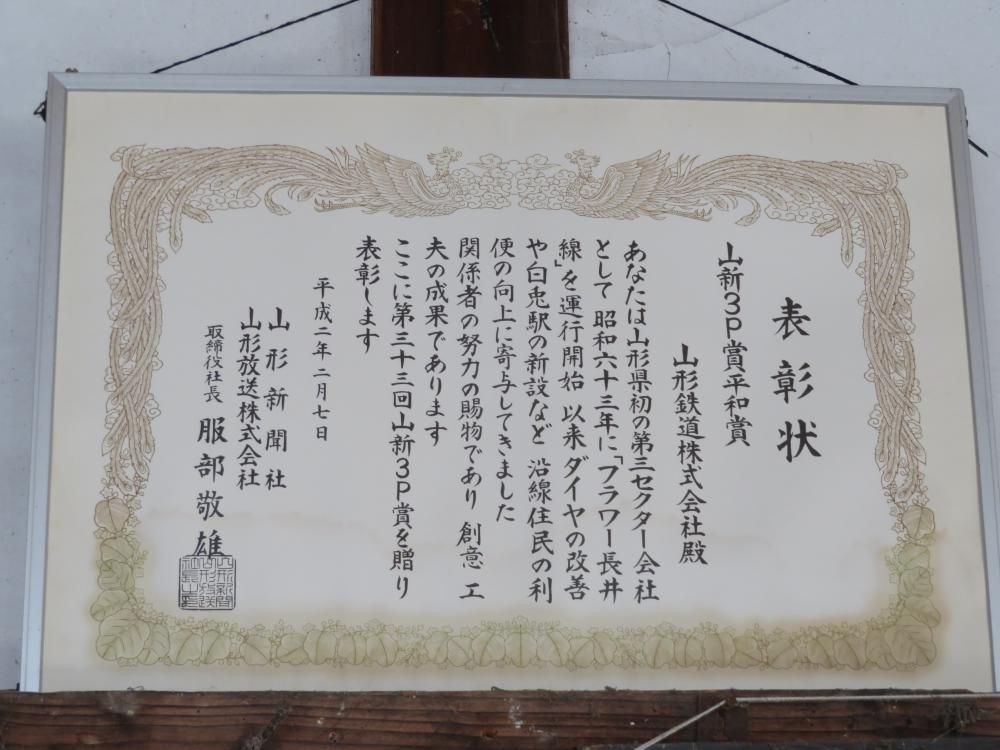 表彰状
山新3P賞平和賞
山形鉄道株式会社殿
あなたは山形県初の第三セクター会社
として 昭和六十三年に「フラワー長井
線」を運行開始 以来 ダイヤの改善
や白兎駅の新設など 沿線住民の利
便の向上に寄与してきました
関係者の努力の賜物であり 創意 工
夫の成果であります
ここに第三十三回山新3P賞を贈り
表彰します
平成二年二月七日
山形新聞社
山形放送株式会社
取締役社長 服部敬雄